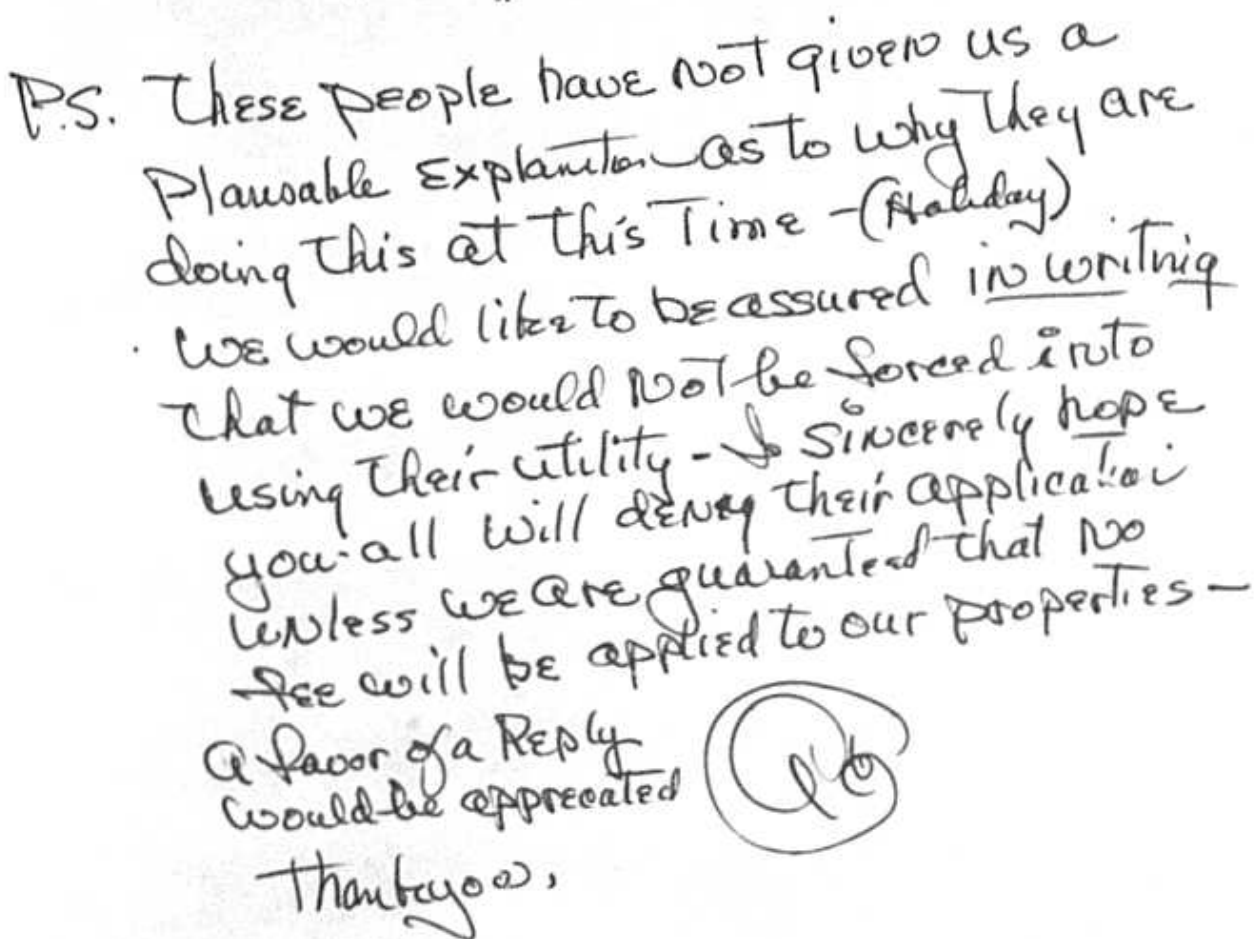 P.S. These people have not given us a
Plausable Explanition as to why they are
doing this at this Time - (Holiday)
We would like to be assured in writnig
that we would not be forced into
using their utility - I sincerely hope
you-all will deney their applicatioi
unless we are guaranteed that no
fee will be applied to our properties -
a favor of a Reply
would be apprecated
Thankyou,